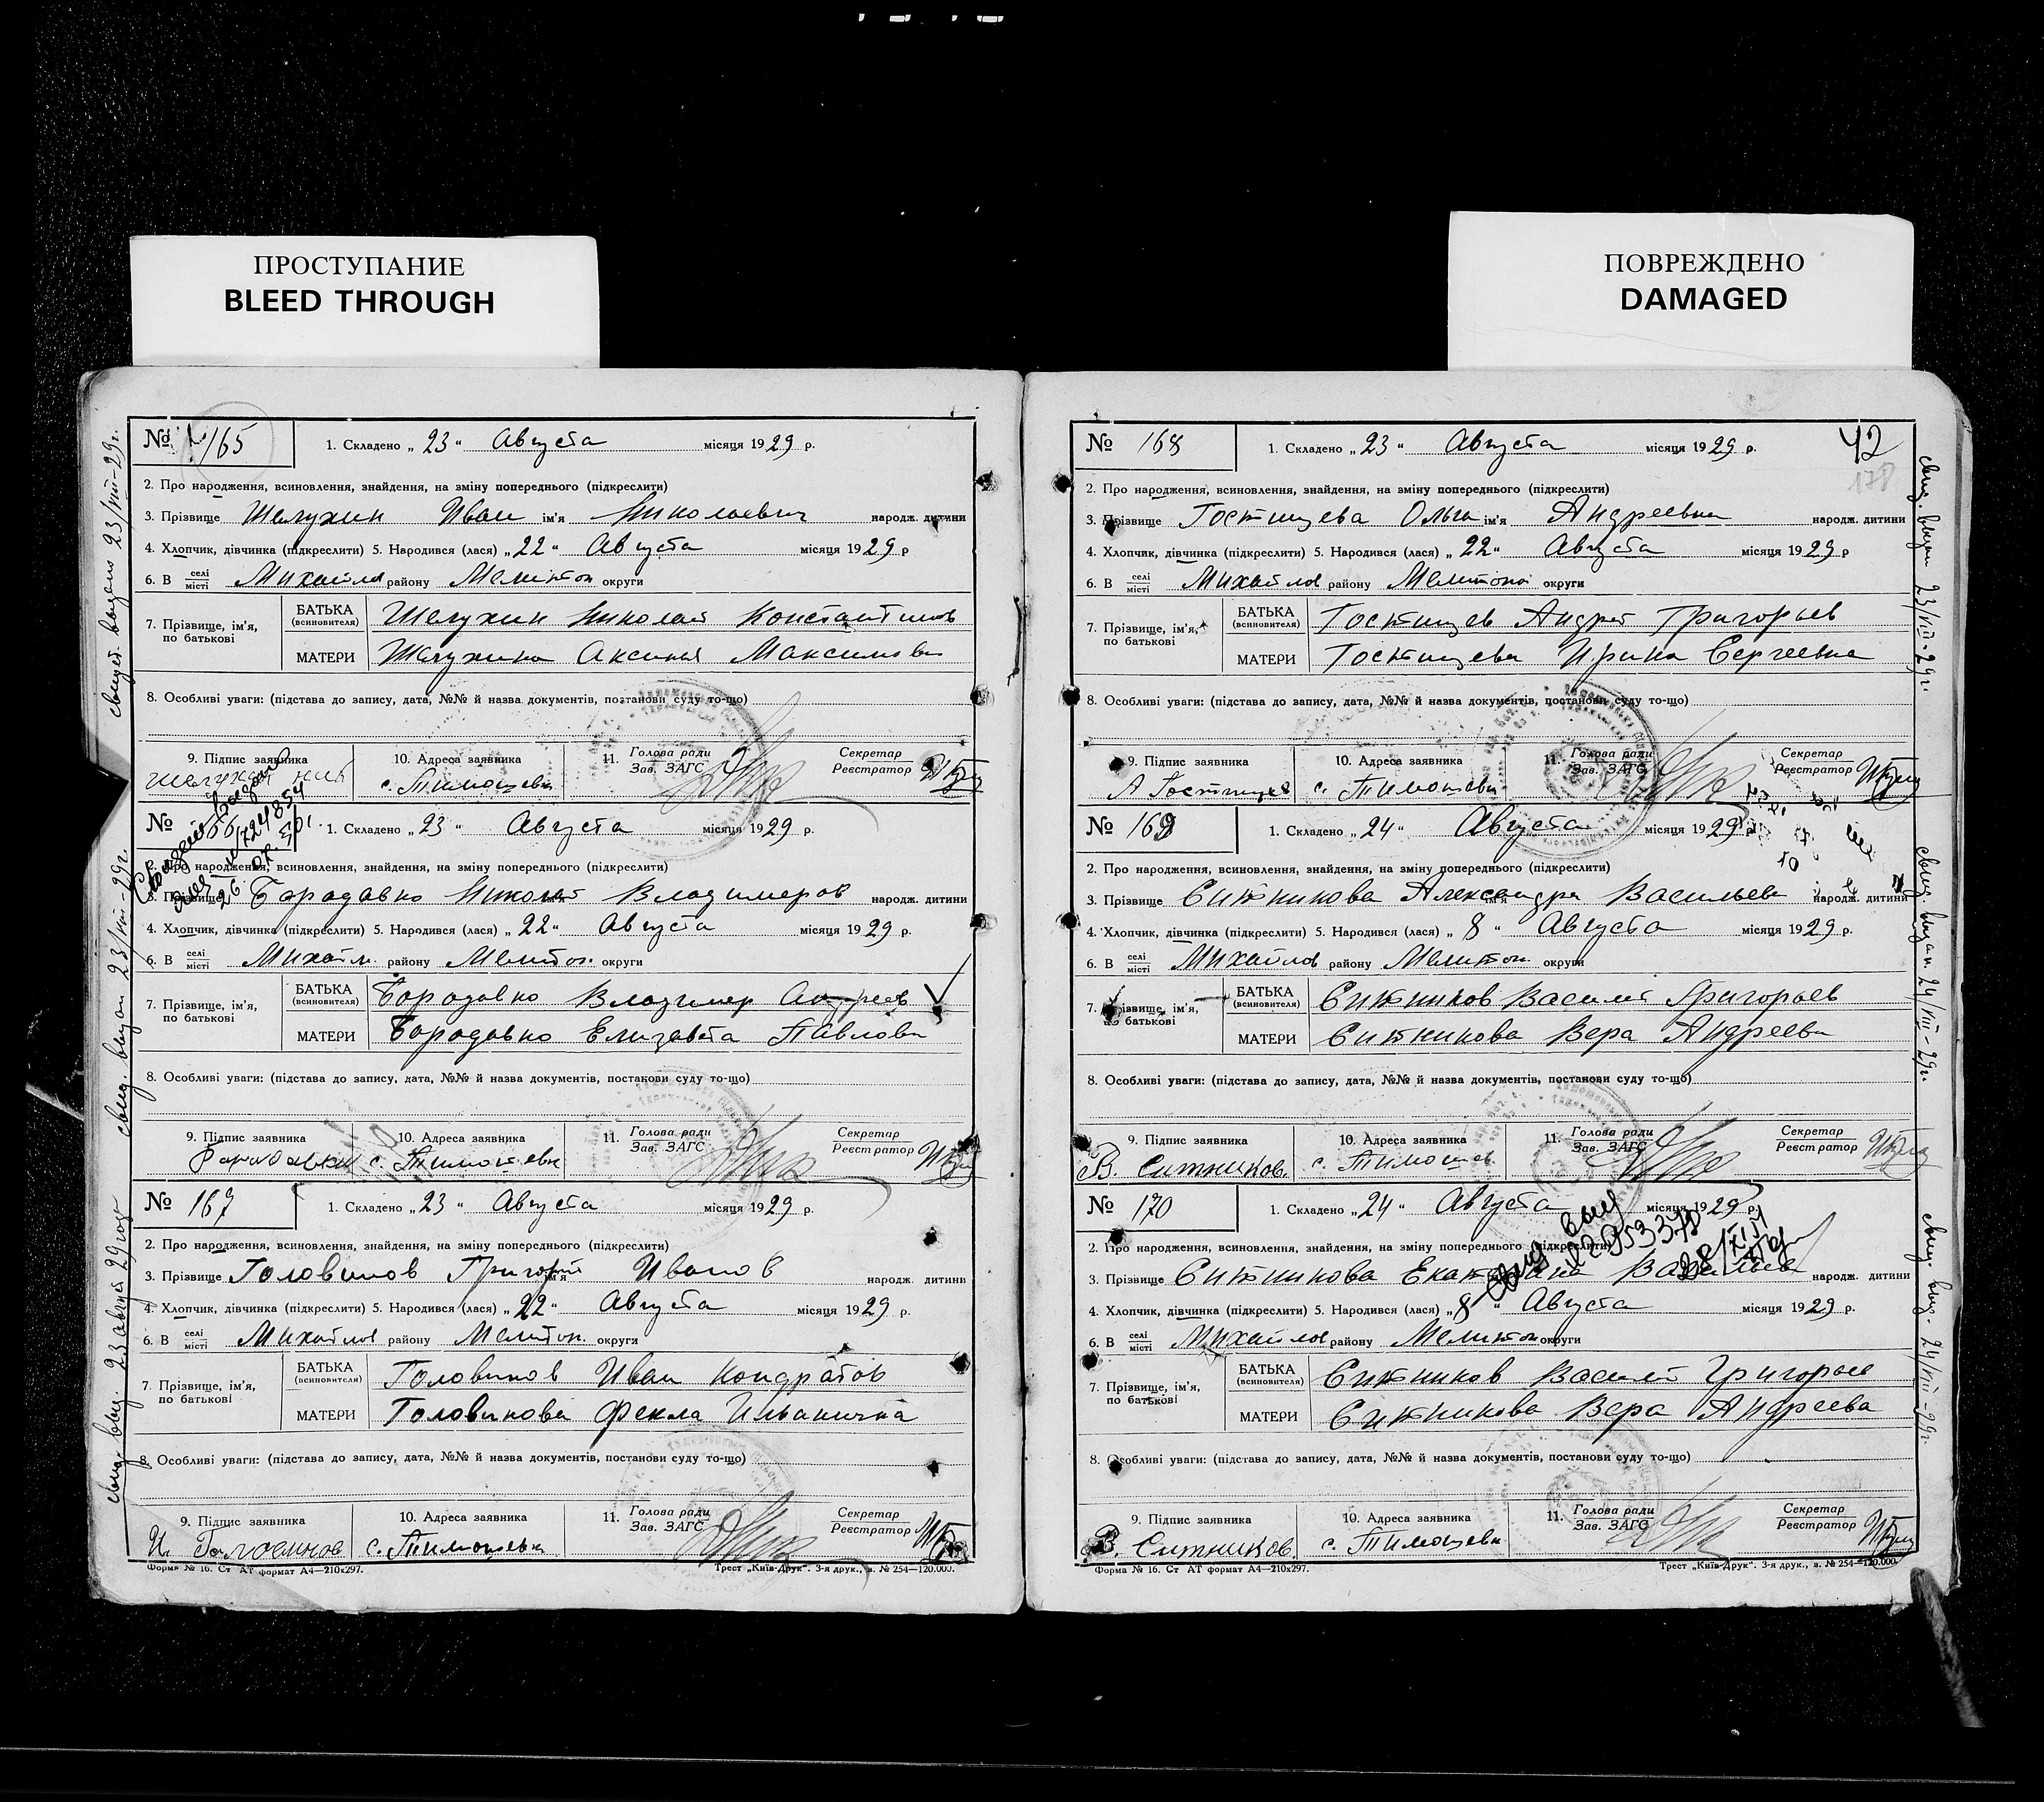 ПРОСТУПАНИЕ
BLEED THROUGH
ПОВРЕЖДЕНО
DAMAGED
№ 165 1. Складено „ 23 “ Августа місяця 1929 р.
2. Про народження, всиновлення, знайдення, на зміну попереднього (підкреслити)
3. Прізвище Шелухин Иван ім'я Николаевич народж. дитини
4. Хлопчик, дівчинка (підкреслити) 5. Народився (лася) „ 22 “ Августа місяця 1929 р
6. В селі місті Михайлов району Мелитоп округи
7. Прізвище, ім'я, по батькові БАТЬКА (всиновителя) Шелухин Николай Константинов
МАТЕРИ Шелухина Аксинья Максимовн
8. Особливі уваги: (підстава до запису, дата, №№ й назва документів, постанови суду то-що)
9. Підпис заявника 10. Адреса заявника 11. Голова ради Зав. ЗАГС Секретар Реєстратор
с. Тимошевка
свидет. выдано 23/VIII-29г.
№ 166 1. Складено „ 23 “ Августа місяця 1929 р.
2. Про народження, всиновлення, знайдення, на зміну попереднього (підкреслити)
3. Прізвище Бородавко Николай Владимиров народж. дитини
4. Хлопчик, дівчинка (підкреслити) 5. Народився (лася) „ 22 “ Августа місяця 1929 р.
6. В селі місті Михайл. району Мелитоп. округи
7. Прізвище, ім'я, по батькові БАТЬКА (всиновителя) Бородавко Владимир Андреев
МАТЕРИ Бородавко Елизавета Павловн
8. Особливі уваги: (підстава до запису, дата, №№ й назва документів, постанови суду то-що)
9. Підпис заявника 10. Адреса заявника 11. Голова ради Зав. ЗАГС Секретар Реєстратор
с. Тимошевка
свид. выдан 23/VIII-29г.
№ 167 1. Складено „ 23 “ Августа місяця 1929 р.
2. Про народження, всиновлення, знайдення, на зміну попереднього (підкреслити)
3. Прізвище Головинов Григорий ім'я Иванов народж. дитини
4. Хлопчик, дівчинка (підкреслити) 5. Народився (лася) „ 22 “ Августа місяця 1929 р.
6. В селі місті Михайлов району Мелитоп. округи
7. Прізвище, ім'я, по батькові БАТЬКА (всиновителя) Головинов Иван Кондратов
МАТЕРИ Головинова Фекла Ильинична
8. Особливі уваги: (підстава до запису, дата, №№ й назва документів, постанови суду то-що)
9. Підпис заявника 10. Адреса заявника 11. Голова ради Зав. ЗАГС Секретар Реєстратор
с. Тимошевка
Форма № 16. Ст АТ формат А4—210х297. Трест „Київ-Друк“. 3-я друк., в. № 254—120.000.
№ 168 1. Складено „ 23 “ Августа місяця 1929 р. 42
178
2. Про народження, всиновлення, знайдення, на зміну попереднього (підкреслити)
3. Прізвище Гостищева Ольга ім'я Андреевна народж. дитини
4. Хлопчик, дівчинка (підкреслити) 5. Народився (лася) „ 22 “ Августа місяця 1929 р
6. В селі місті Михайлов району Мелитоп округи
7. Прізвище, ім'я, по батькові БАТЬКА (всиновителя) Гостищев Андрей Григорьев
МАТЕРИ Гостищева Ирина Сергеевна
8. Особливі уваги: (підстава до запису, дата, №№ й назва документів, постанови суду то-що)
9. Підпис заявника 10. Адреса заявника 11. Голова ради Зав. ЗАГС Секретар Реєстратор
А Гостищев с. Тимошевк
свид. выдан 23/VIII-29г.
№ 169 1. Складено „ 24 “ Августа місяця 1929 р.
2. Про народження, всиновлення, знайдення, на зміну попереднього (підкреслити)
3. Прізвище Ситникова Александра Васильев народж. дитини
4. Хлопчик, дівчинка (підкреслити) 5. Народився (лася) „ 8 “ Августа місяця 1929 р.
6. В селі місті Михайлов району Мелитоп. округи
7. Прізвище, ім'я, по батькові БАТЬКА (всиновителя) Ситников Василий Григорьев
МАТЕРИ Ситникова Вера Андреевн
8. Особливі уваги: (підстава до запису, дата, №№ й назва документів, постанови суду то-що)
9. Підпис заявника 10. Адреса заявника 11. Голова ради Зав. ЗАГС Секретар Реєстратор
В. Ситников. с. Тимошев
свид. выдан. 24/VIII-29г.
№ 170 1. Складено „ 24 “ Августа місяця 1929 р.
2. Про народження, всиновлення, знайдення, на зміну попереднього (підкреслити)
3. Прізвище Ситникова Екатерина Васильев народж. дитини
4. Хлопчик, дівчинка (підкреслити) 5. Народився (лася) „ 8 “ Августа місяця 1929 р.
6. В селі місті Михайлов району Мелитоп округи
7. Прізвище, ім'я, по батькові БАТЬКА (всиновителя) Ситников Василий Григорьев
МАТЕРИ Ситникова Вера Андреева
8. Особливі уваги: (підстава до запису, дата, №№ й назва документів, постанови суду то-що)
9. Підпис заявника 10. Адреса заявника 11. Голова ради Зав. ЗАГС Секретар Реєстратор
В. Ситников. с. Тимошевк
свид. выд. 24/VIII-29г.
Форма № 16. Ст АТ формат А4—210х297. Трест „Київ-Друк“. 3-я друк., в. № 254—120.000.